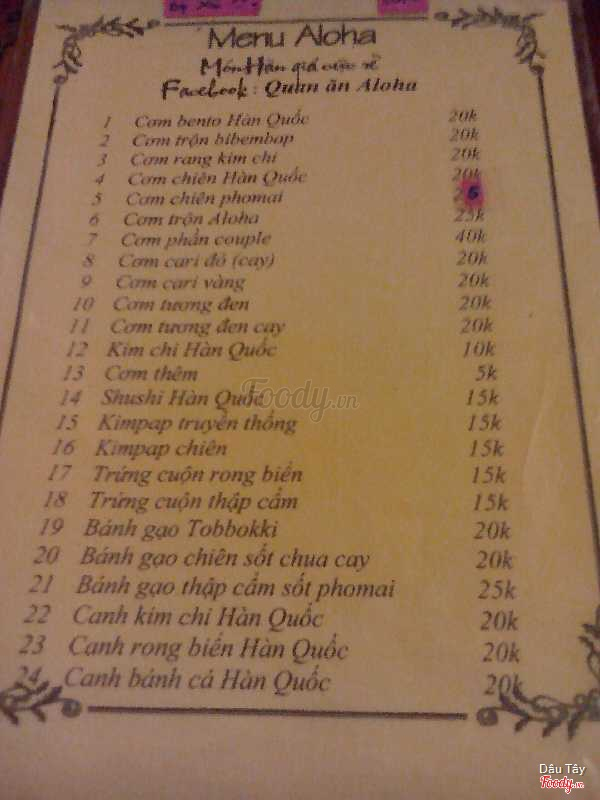 Menu Aloha
Món Hàn giá cực rẻ
Facebook : Quán ăn Aloha
1 Cơm bento Hàn Quốc 20k
2 Cơm trộn bibembop 20k
3 Cơm rang kim chi 20k
4 Cơm chiên Hàn Quốc 20k
5 Cơm chiên phomai 25
6 Cơm trộn Aloha 25k
7 Cơm phần couple 40k
8 Cơm cari đỏ (cay) 20k
9 Cơm cari vàng 20k
10 Cơm tương đen 20k
11 Cơm tương đen cay 20k
12 Kim chi Hàn Quốc 10k
13 Cơm thêm 5k
14 Shushi Hàn Quốc 15k
15 Kimpap truyền thống 15k
16 Kimpap chiên 15k
17 Trứng cuộn rong biển 15k
18 Trứng cuộn thập cẩm 15k
19 Bánh gạo Tobbokki 20k
20 Bánh gạo chiên sốt chua cay 20k
21 Bánh gạo thập cẩm sốt phomai 25k
22 Canh kim chi Hàn Quốc 20k
23 Canh rong biển Hàn Quốc 20k
24 Canh bánh cá Hàn Quốc 20k
Foody.vn
Dâu Tây
Foody.vn